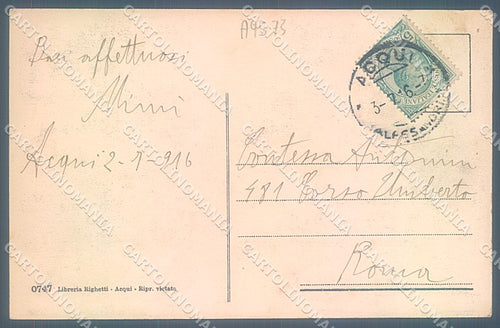 A9573
Baci affettuosi
Mimì
Acqui 2-1-916
ACQUI
ALESSANDRIA
Contessa Antonini
481 Corso Umberto
Roma
0747 Libreria Righetti - Acqui - Ripr. vietata
CARTOLINOMANIA